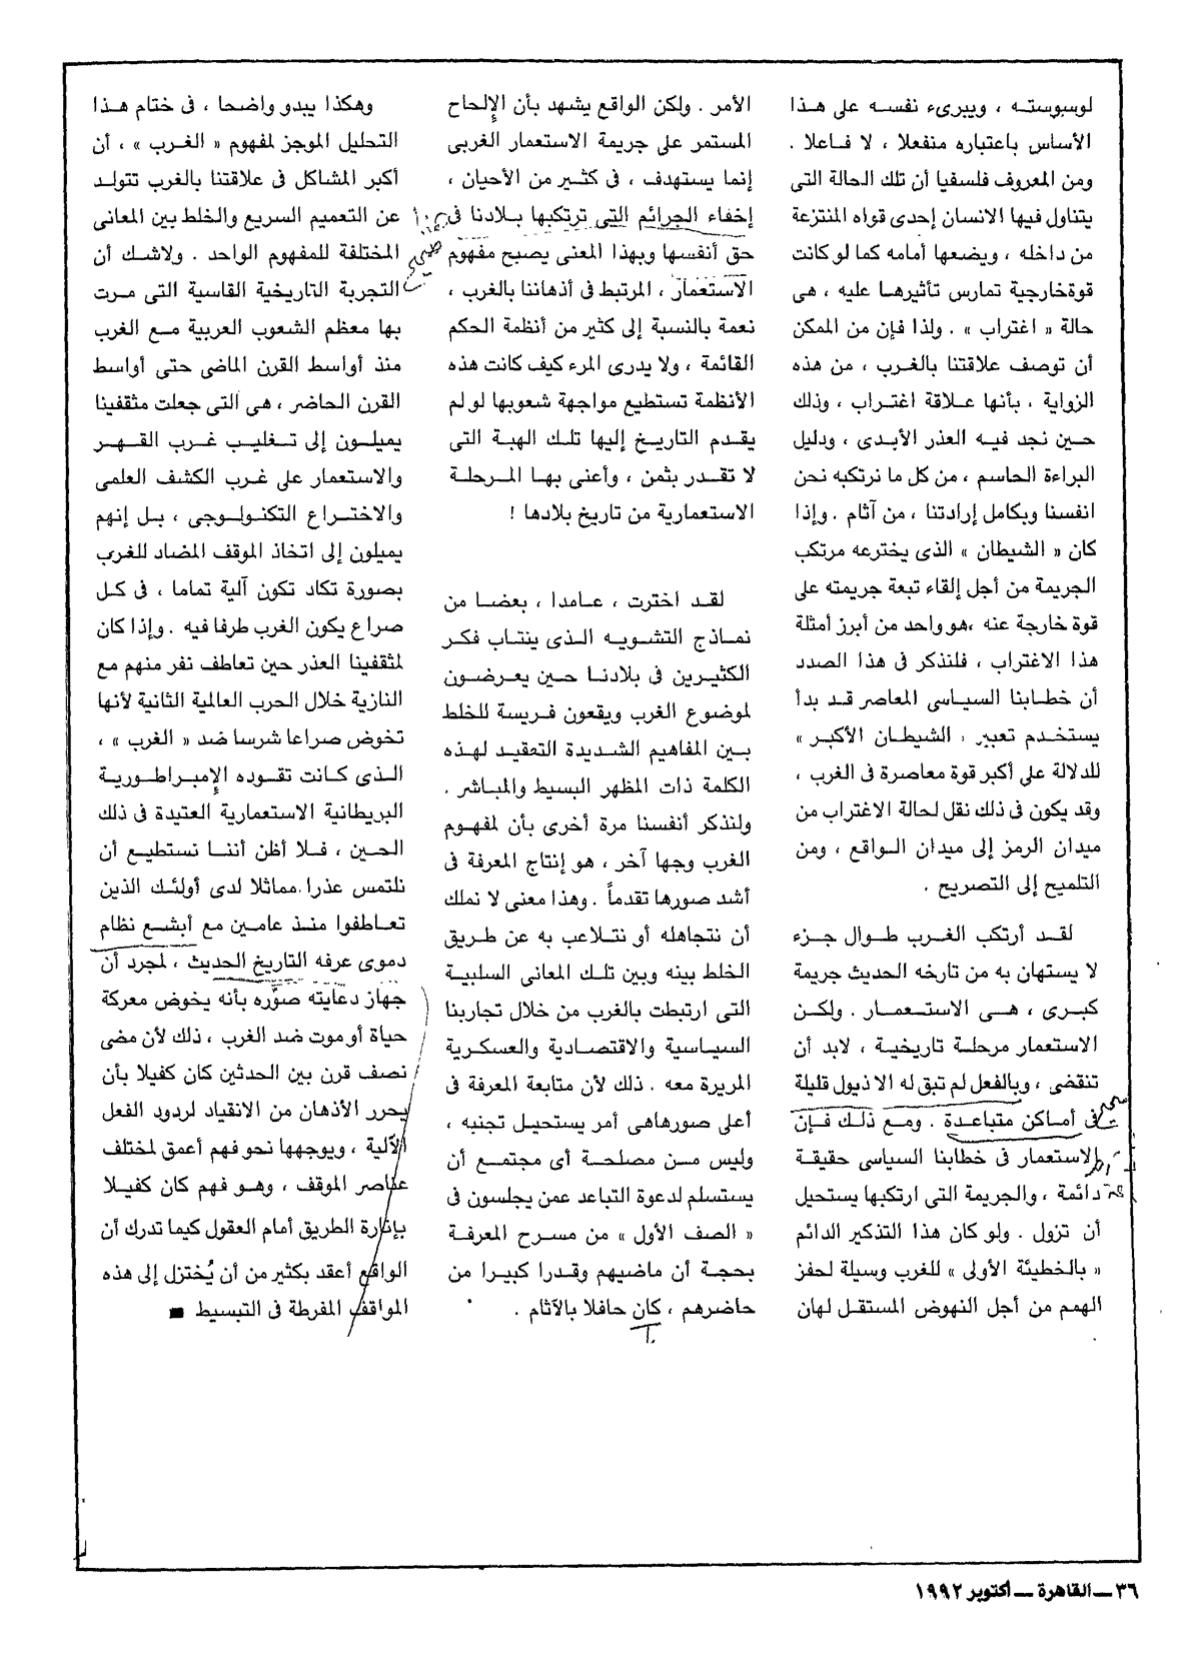 لوسبوسته ، ويبرىء نفسه على هذا
الأساس باعتباره منفعلا ، لا فاعلا .
ومن المعروف فلسفيا أن تلك الحالة التى
يتناول فيها الانسان إحدى قواه المنتزعة
من داخله ، ويضعها أمامه كما لو كانت
قوة خارجية تمارس تأثيرها عليه ، هى
حالة « اغتراب » . ولذا فإن من الممكن
أن توصف علاقتنا بالغرب ، من هذه
الزواية ، بأنها علاقة اغتراب ، وذلك
حين نجد فيه العذر الأبدى ، ودليل
البراءة الحاسم ، من كل ما نرتكبه نحن
انفسنا وبكامل إرادتنا ، من آثام . وإذا
كان « الشيطان » الذى يخترعه مرتكب
الجريمة من أجل إلقاء تبعة جريمته على
قوة خارجة عنه ،هو واحد من أبرز أمثلة
هذا الاغتراب ، فلنذكر فى هذا الصدد
أن خطابنا السياسى المعاصر قد بدأ
يستخدم تعبير ، الشيطان الأكبر »
للدلالة على أكبر قوة معاصرة فى الغرب ،
وقد يكون فى ذلك نقل لحالة الاغتراب من
ميدان الرمز إلى ميدان الواقع ، ومن
التلميح إلى التصريح .
لقد أرتكب الغرب طوال جزء
لا يستهان به من تارخه الحديث جريمة
كبرى ، هى الاستعمار . ولكن
الاستعمار مرحلة تاريخية ، لابد أن
تنقضى ، وبالفعل لم تبق له الا ذيول قليلة
فى أماكن متباعدة . ومع ذلك فإن
الاستعمار فى خطابنا السياسى حقيقة
دائمة ، والجريمة التى ارتكبها يستحيل
أن تزول . ولو كان هذا التذكير الدائم
« بالخطيئة الأولى » للغرب وسيلة لحفز
الهمم من أجل النهوض المستقل لهان
الأمر . ولكن الواقع يشهد بأن الإلحاح
المستمر على جريمة الاستعمار الغربى
إنما يستهدف ، فى كثير من الأحيان ،
إخفاء الجرائم التى ترتكبها بلادنا فى
حق أنفسها وبهذا المعنى يصبح مفهوم
الاستعمار ، المرتبط فى أذهاننا بالغرب ،
نعمة بالنسبة إلى كثير من أنظمة الحكم
القائمة ، ولا يدرى المرء كيف كانت هذه
الأنظمة تستطيع مواجهة شعوبها لو لم
يقدم التاريخ إليها تلك الهبة التى
لا تقدر بثمن ، وأعنى بها المرحلة
الاستعمارية من تاريخ بلادها !
لقد اخترت ، عامدا ، بعضا من
نماذج التشويه الذى ينتاب فكر
الكثيرين فى بلادنا حين يعرضون
لموضوع الغرب ويقعون فريسة للخلط
بين المفاهيم الشديدة التعقيد لهذه
الكلمة ذات المظهر البسيط والمباشر .
ولنذكر أنفسنا مرة أخرى بأن لمفهوم
الغرب وجها آخر ، هو إنتاج المعرفة فى
أشد صورها تقدماً . وهذا معنى لا نملك
أن نتجاهله أو نتلاعب به عن طريق
الخلط بينه وبين تلك المعانى السلبية
التى ارتبطت بالغرب من خلال تجاربنا
السياسية والاقتصادية والعسكرية
المريرة معه . ذلك لأن متابعة المعرفة فى
أعلى صورهاهى أمر يستحيل تجنبه ،
وليس من مصلحة أى مجتمع أن
يستسلم لدعوة التباعد عمن يجلسون فى
« الصف الأول » من مسرح المعرفة
بحجة أن ماضيهم وقدرا كبيرا من
حاضرهم ، كان حافلا بالآثام .
وهكذا يبدو واضحا ، فى ختام هذا
التحليل الموجز لمفهوم « الغرب » ، أن
أكبر المشاكل فى علاقتنا بالغرب تتولد
عن التعميم السريع والخلط بين المعانى
المختلفة للمفهوم الواحد . ولاشك أن
التجربة التاريخية القاسية التى مرت
بها معظم الشعوب العربية مع الغرب
منذ أواسط القرن الماضى حتى أواسط
القرن الحاضر ، هى التى جعلت مثقفينا
يميلون إلى تغليب غرب القهر
والاستعمار على غرب الكشف العلمى
والاختراع التكنولوجى ، بل إنهم
يميلون إلى اتخاذ الموقف المضاد للغرب
بصورة تكاد تكون آلية تماما ، فى كل
صراع يكون الغرب طرفا فيه . وإذا كان
لمثقفينا العذر حين تعاطف نفر منهم مع
النازية خلال الحرب العالمية الثانية لأنها
تخوض صراعا شرسا ضد « الغرب » ،
الذى كانت تقوده الإمبراطورية
البريطانية الاستعمارية العتيدة فى ذلك
الحين ، فلا أظن أننا نستطيع أن
نلتمس عذرا مماثلا لدى أولئك الذين
تعاطفوا منذ عامين مع أبشع نظام
دموى عرفه التاريخ الحديث ، لمجرد أن
جهاز دعايته صوّره بأنه يخوض معركة
حياة أو موت ضد الغرب ، ذلك لأن مضى
نصف قرن بين الحدثين كان كفيلا بأن
يحرر الأذهان من الانقياد لردود الفعل
الآلية ، ويوجهها نحو فهم أعمق لمختلف
عناصر الموقف ، وهو فهم كان كفيلا
بإنارة الطريق أمام العقول كيما تدرك أن
الواقع أعقد بكثير من أن يُختزل إلى هذه
المواقف المفرطة فى التبسيط ■
٣٦ ــ القاهرة ــ أكتوبر ١٩٩٢